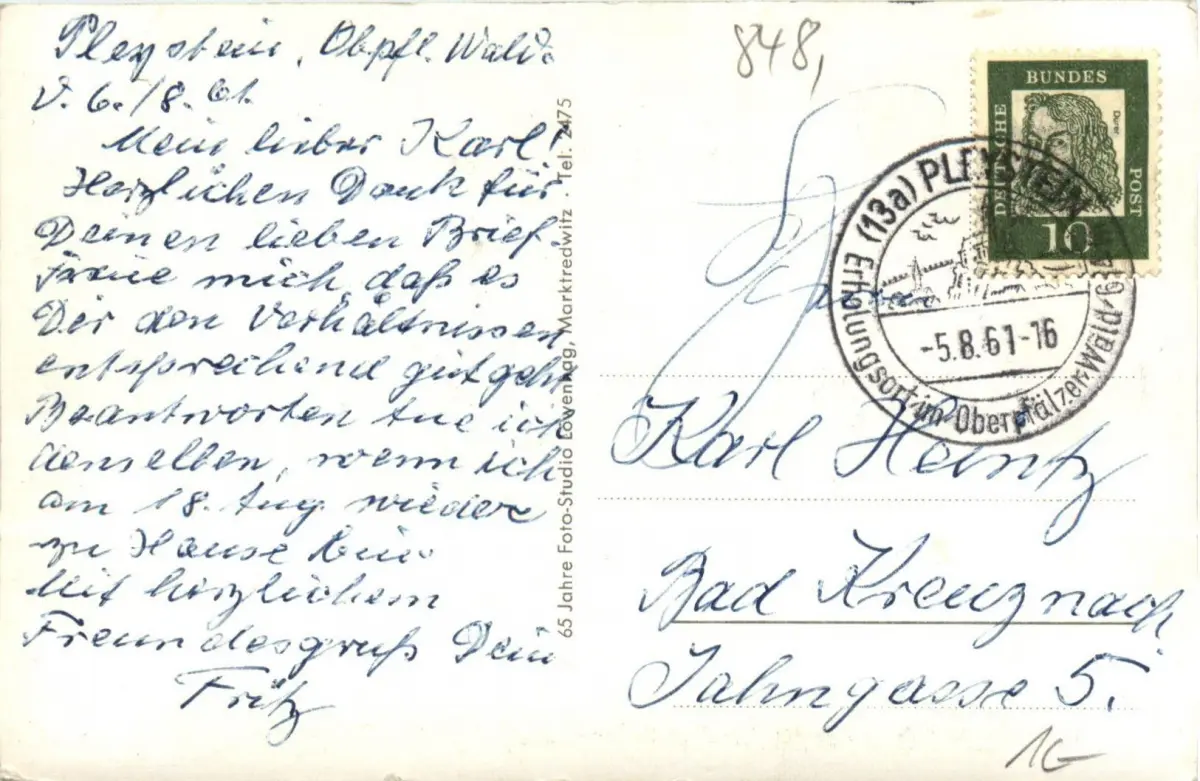 Pleystein, Obpfl. Wald.
d. 6./8. 61.
Mein lieber Karl!
Herzlichen Dank für
Deinen lieben Brief.
Freue mich, daß es
Dir den Verhältnissen
entsprechend gut geht
Beantworten tue ich
denselben, wenn ich
am 18. Aug. wieder
zu Hause bin.
Mit herzlichem
Freundesgruß Dein
Fritz
65 Jahre Foto-Studio Löwenhag, Marktredwitz · Tel. 2475
848,
DEUTSCHE BUNDES POST
Dürer
10
(13a) PLEYSTEIN
Erholungsort im Oberpfälzer Wald
-5.8.61-16
Karl Heintz
Bad Kreuznach
Jahngasse 5.